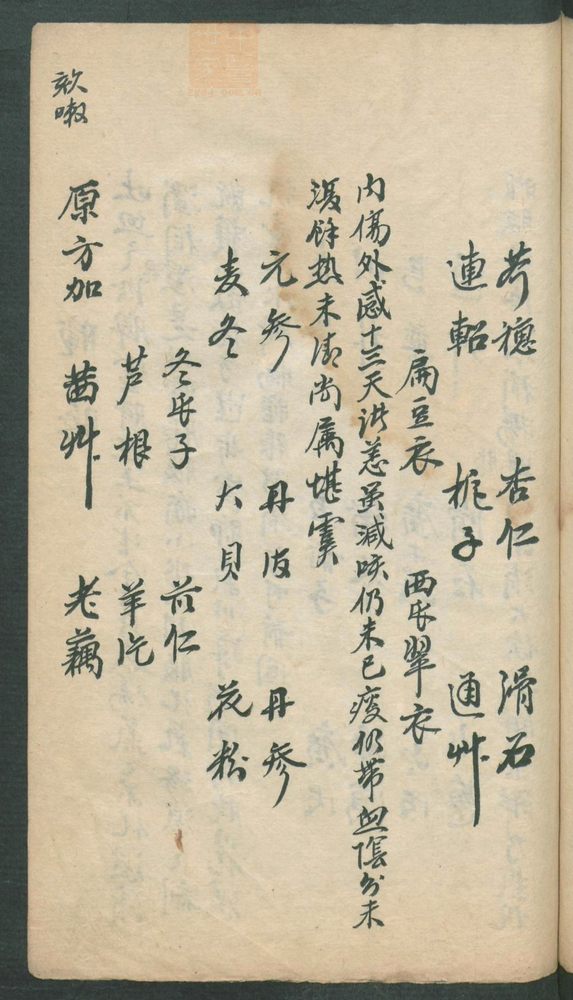 芥穗 杏仁 滑石
連軺 梔子 通艸
扁豆衣 西瓜翠衣
内傷外感十三天諸恙虽減咳仍未已痰仍帶血陰分未
復餘熱未清尚属堪虞
元参 丹皮 丹参
麦冬 大貝 花粉
冬瓜子 苡仁
芦根 羊
原方加 茜艸 老藕
欬嗽